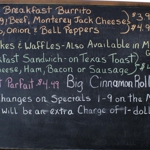 Breakfast Burrito
gg, Beef, Monterey Jack Cheese
o, Onion & Bell Peppers
kes & Waffles-Also Available in M
kfast Sandwich-on Texas Toast
eese, Ham, Bacon or Sausage
t Parfait $4.49 Big Cinnamon Roll
changes on Specials 1-9 on the M
will be an extra Charge of 1-doll